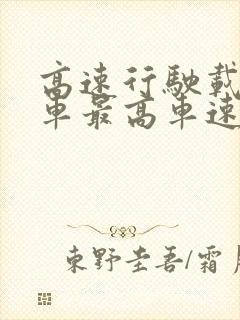 高速行駛載
車最高車速
東野圭吾/霜月